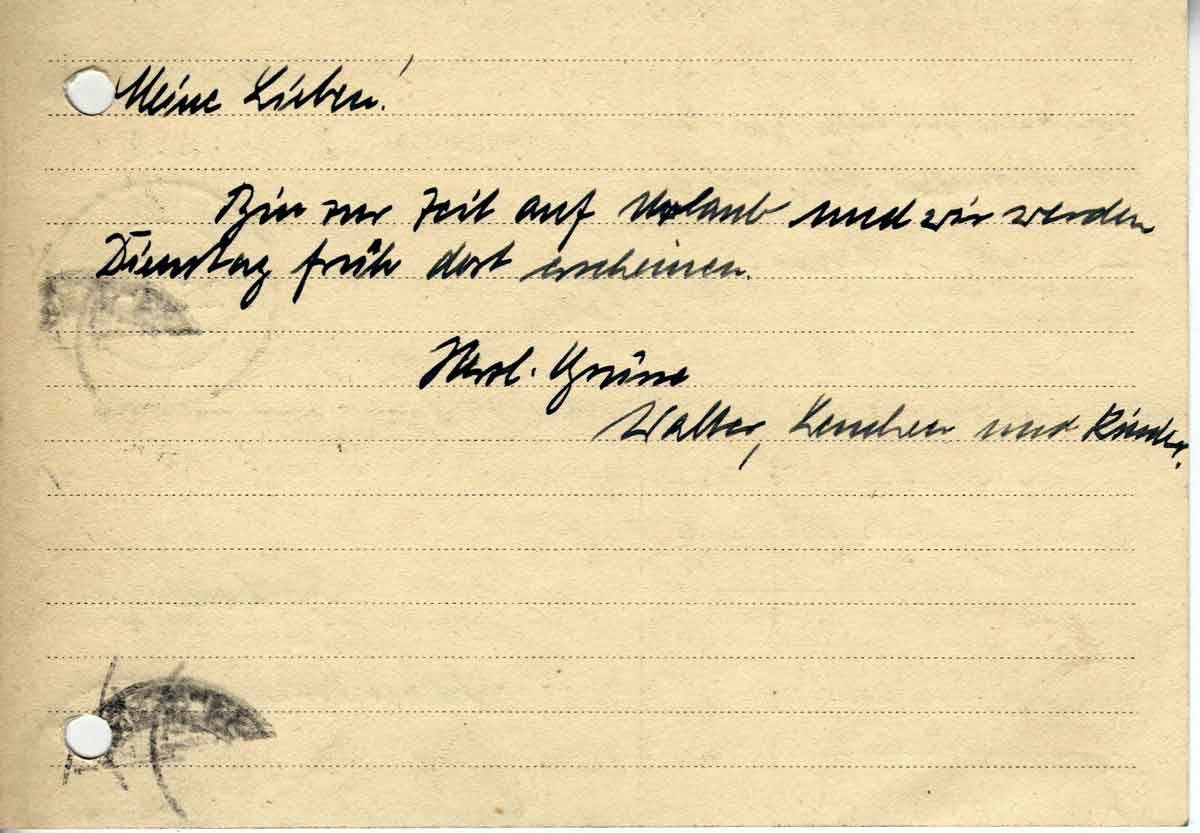 Meine Lieben!
Bin zur Zeit auf Urlaub und wir werden
Dienstag früh dort erscheinen.
Herzl. Grüsse
Walter, Lenchen und Kinder.